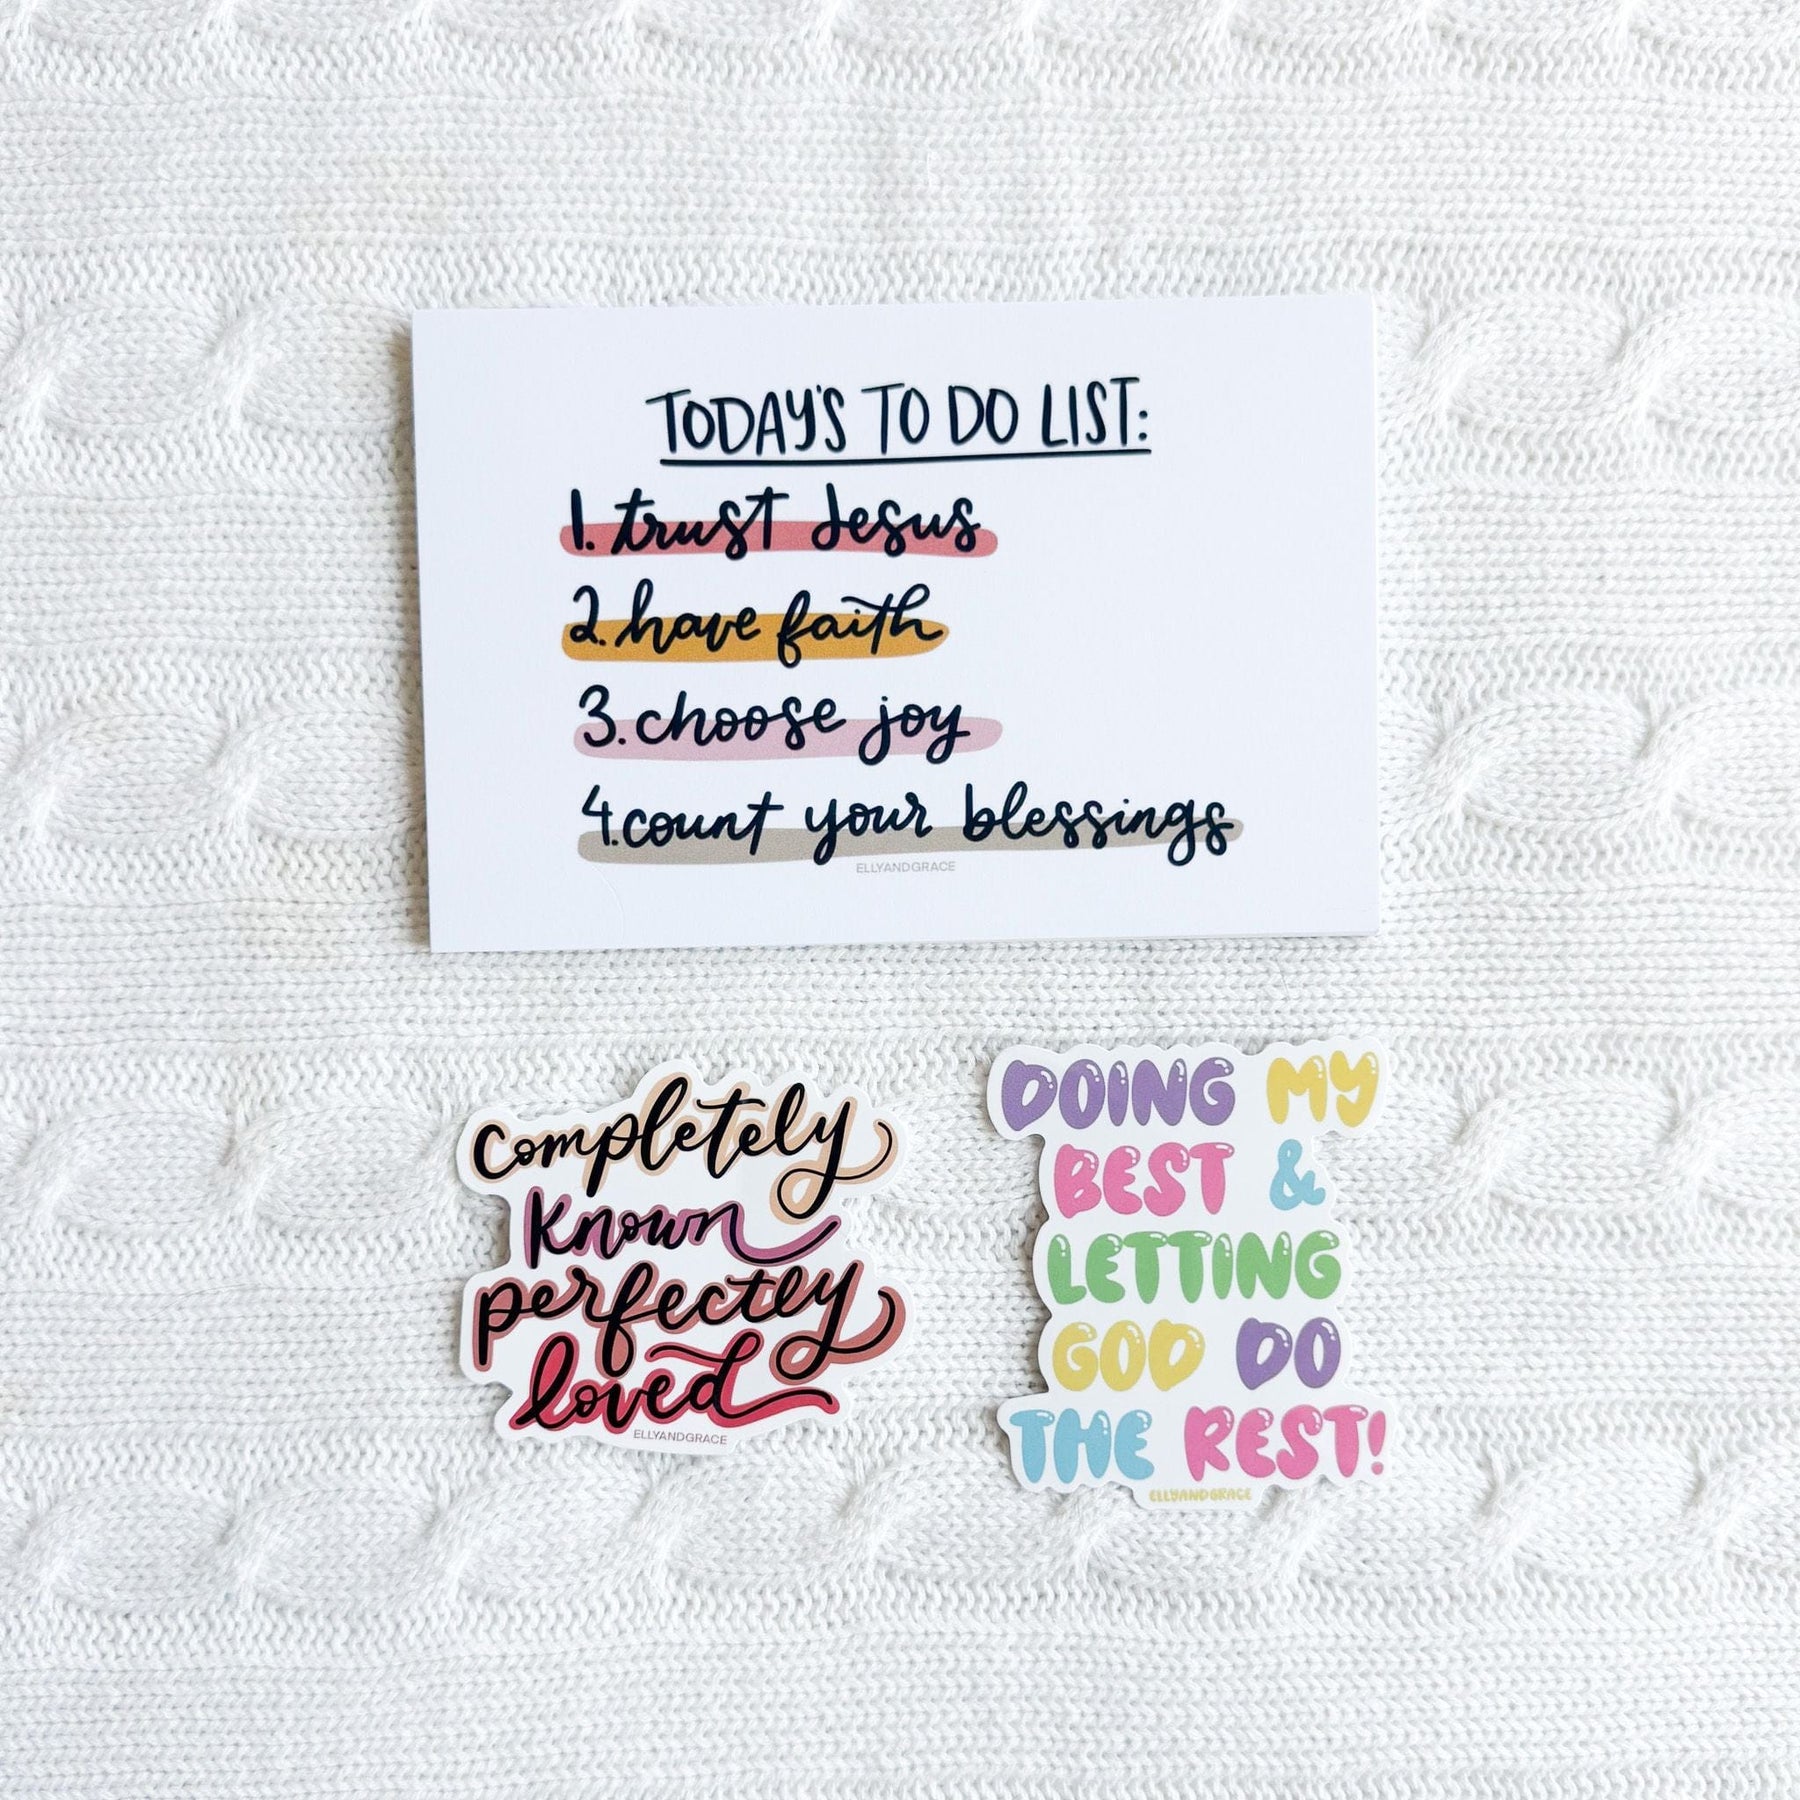 TODAY'S TO DO LIST:
1. trust Jesus
2. have faith
3. choose joy
4. count your blessings
ELLYANDGRACE
completely
known
perfectly
loved
ELLYANDGRACE
DOING MY
BEST &
LETTING
GOD DO
THE REST!
ELLYANDGRACE